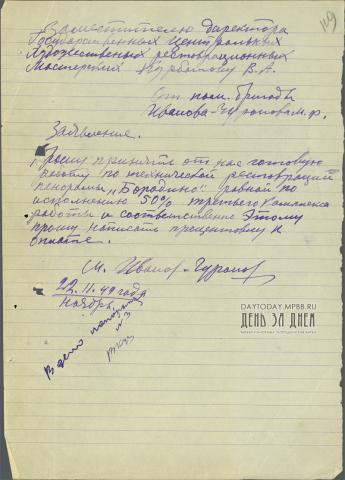 119
Заместителю директора
Государственных Центральных
Художественых реставрационных
Мастерских Курбатову В.А.
От пом. бригады
Иванова-Чуронова м.ф.
Заявление.
Прошу принять от нас готовую
работу по технической реставрации
пенорамы „Бородино“ равной по
исполнению 50% третьего Комплекса
работы и соответственно Этому
прошу написать процентовку к
оплате.
М. Иванов-Чуронов
22.11.49 года
Ноябрь
В дело
№3
DAYTODAY.MPBB.RU
ДЕНЬ ЗА ДНЕМ